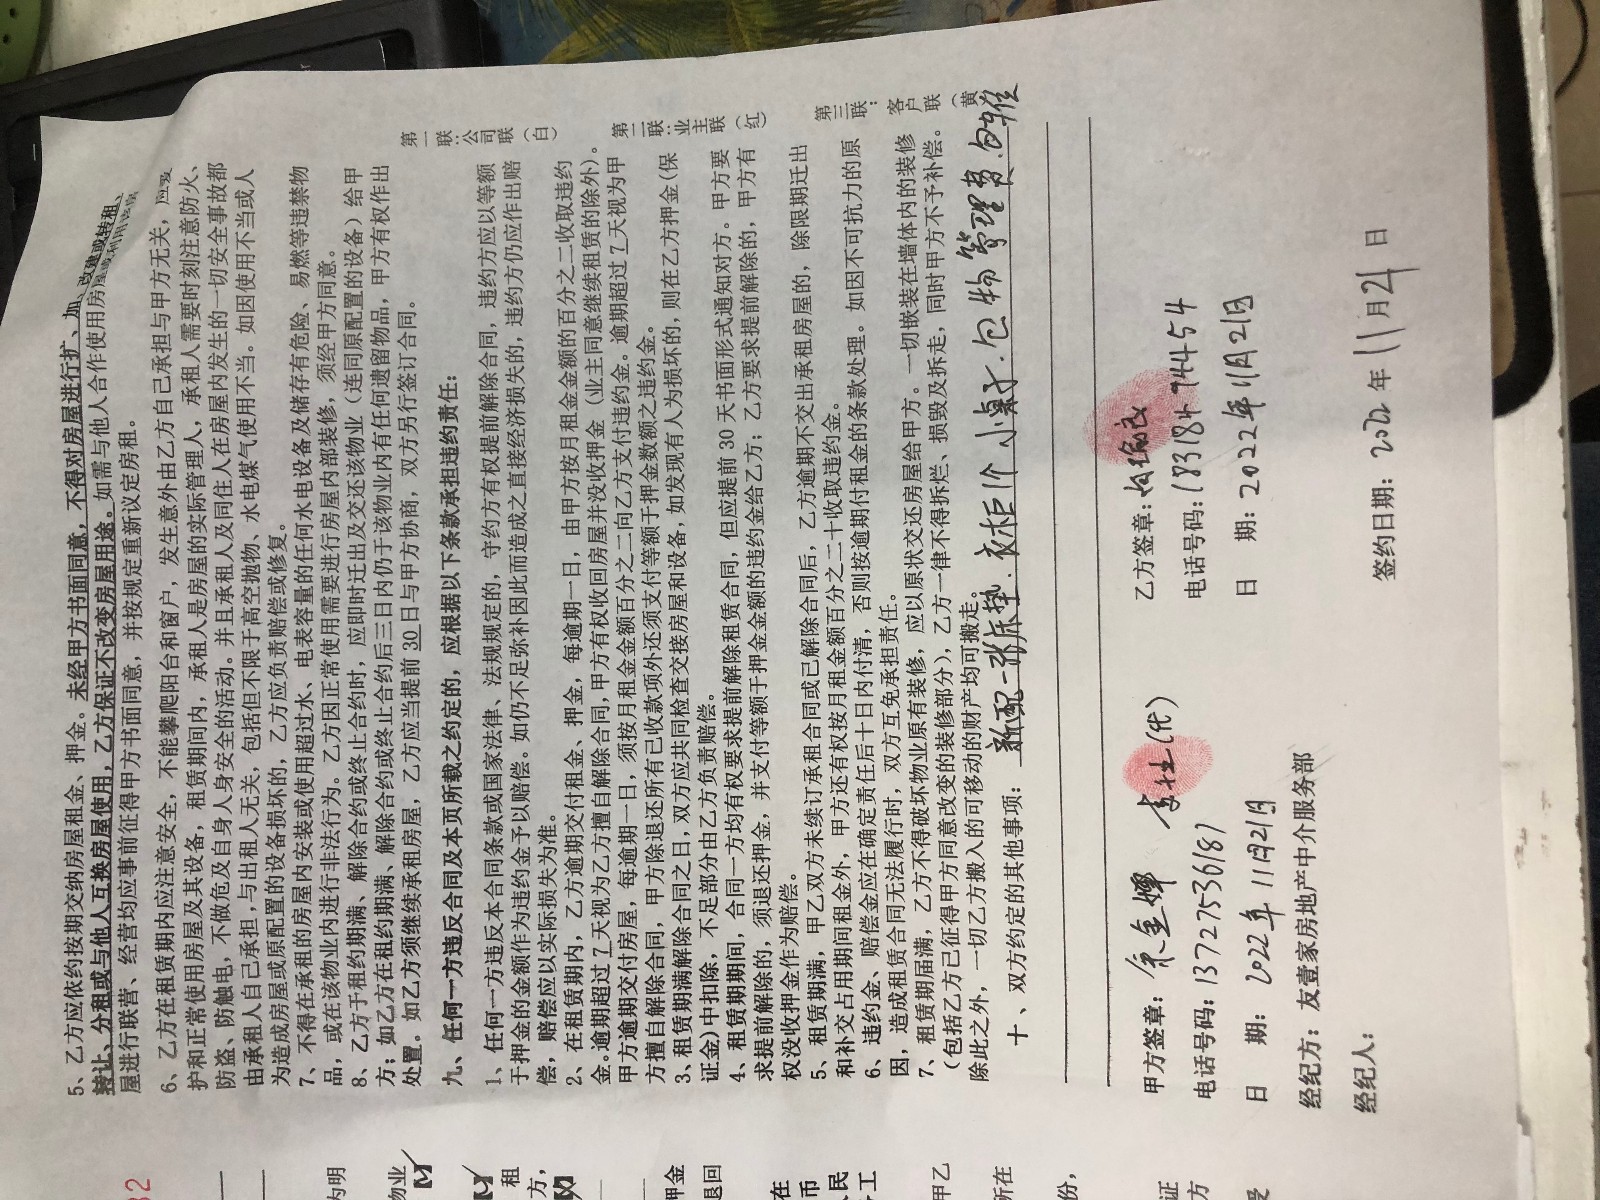 5、乙方应依约按期交纳房屋租金、押金。未经甲方书面同意，不得对房屋进行扩、加、改建或转租、
转让、分租或与他人互换房屋使用，乙方保证不改变房屋用途。如需与他人合作使用房屋或利用
屋进行联营、经营均应事前征得甲方书面同意，并按规定重新议定房租。
6、乙方在租赁期内应注意安全，不能攀爬阳台和窗户，发生意外由乙方自己承担与甲方无关，应爱
护和正常使用房屋及其设备，租赁期间内，承租人是房屋的实际管理人，承租人需要时刻注意防火、
防盗、防触电，不做危及自身人身安全的活动。并且承租人及同住人在房屋内发生的一切安全事故都
由承租人自己承担，与出租人无关，包括但不限于高空抛物、水电煤气使用不当。如因使用不当或人
为造成房屋或原配置的设备损坏的，乙方应负责赔偿或修复。
7、不得在承租的房屋内安装或使用超过水、电表容量的任何水电设备及储存有危险、易燃等违禁物
品，或在该物业内进行非法行为。乙方因正常使用需要进行房屋内部装修，须经甲方同意。
8、乙方于租约期满、解除合约或终止合约时，应即时迁出及交还该物业（连同原配置的设备）给甲
方；如乙方在租约期满、解除合约或终止合约后三日内仍于该物业内有任何遗留物品，甲方有权作出
处置。如乙方须继续承租房屋，乙方应当提前30日与甲方协商，双方另行签订合同。
九、任何一方违反合同及本页所载之约定的，应根据以下条款承担违约责任：
1、任何一方违反本合同条款或国家法律、法规规定的，守约方有权提前解除合同，违约方应以等额
于押金的金额作为违约金予以赔偿。如仍不足弥补因此而造成之直接经济损失的，违约方仍应作出赔
偿，赔偿应以实际损失为准。
2、在租赁期内，乙方逾期交付租金、押金，每逾期一日，由甲方按月租金金额的百分之二收取违约
金。逾期超过7天视为乙方擅自解除合同，甲方有权收回房屋并没收押金（业主同意继续租赁的除外）。
甲方逾期交付房屋，每逾期一日，须按月租金金额百分之二向乙方支付违约金。逾期超过7天视为甲
方擅自解除合同，甲方除退还所有已收款项外还须支付等额于押金数额之违约金。
3、租赁期满解除合同之日，双方应共同检查交接房屋和设备，如发现有人为损坏的，则在乙方押金（保
证金）中扣除，不足部分由乙方负责赔偿。
4、租赁期期间，合同一方均有权要求提前解除租赁合同，但应提前30天书面形式通知对方。甲方要
求提前解除的，须退还押金，并支付等额于押金金额的违约金给乙方；乙方要求提前解除的，甲方有
权没收押金作为赔偿。
5、租赁期满，甲乙双方未续订承租合同或已解除合同后，乙方逾期不交出承租房屋的，除限期迁出
和补交占用期间租金外，甲方还有权按月租金额百分之二十收取违约金。
6、违约金、赔偿金应在确定责任后十日内付清，否则按逾期付租金的条款处理。如因不可抗力的原
因，造成租赁合同无法履行时，双方互免承担责任。
7、租赁期届满，乙方不得破坏物业原有装修，应以原状交还房屋给甲方。一切嵌装在墙体内的装修
（包括乙方已征得甲方同意改变的装修部分），乙方一律不得拆烂、损毁及拆走，同时甲方不予补偿。
除此之外，一切乙方搬入的可移动的财产均可搬走。
十、双方约定的其他事项：新配一张床垫.衣柜1个小桌子.包物管理费.
第一联：公司联（白）
第二联：业主联（红）
第三联：客户联（黄
甲方签章：余金辉 (代)
电话号码：13727536187
日 期：2022年11月21日
经纪方：友壹家房地产中介服务部
经纪人：
乙方签章：
电话号码：18318474454
日 期：2022年11月21日
签约日期：2022年11月21日
32
为明
物业
租
方，
押金
退回
在
币
人民
工
甲乙
所在
份，
证
方
受